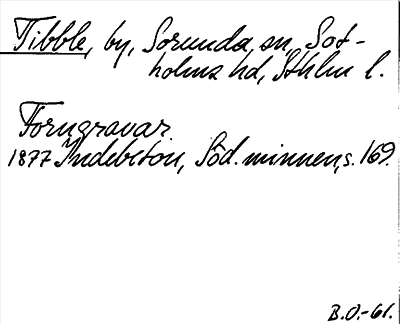 Tibble, by, Sorunda sn, Sot-
holms hd, Sthlm l.
Forngravar
1877 Indebetou, Söd. minnen, s. 169.
B.O.-61.